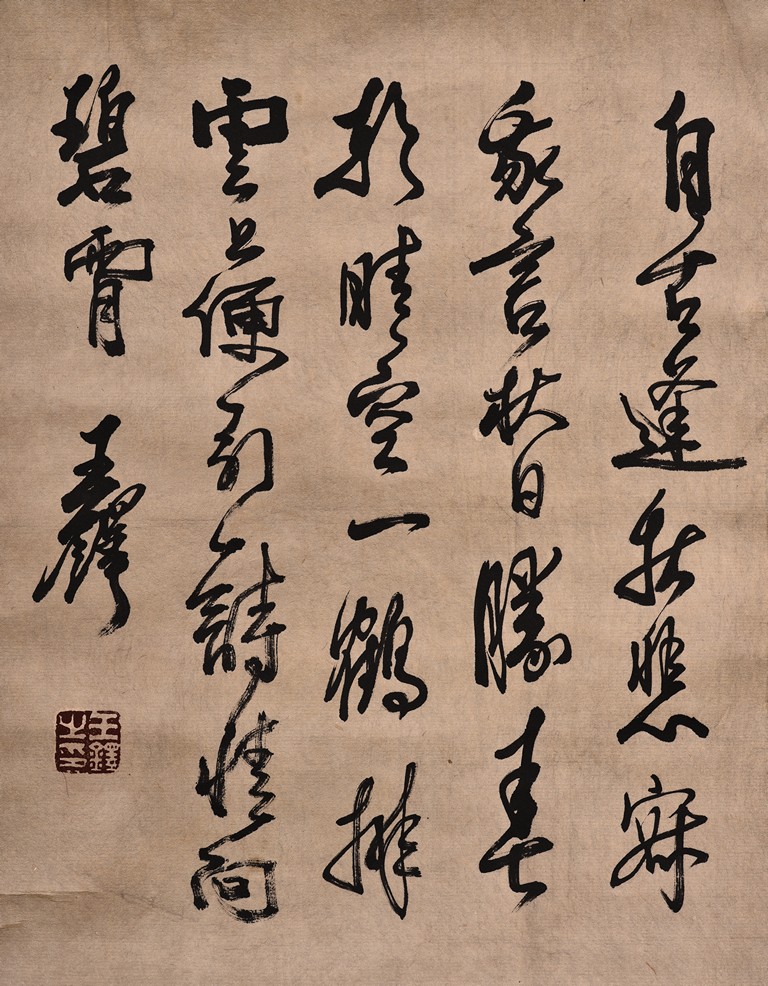 自古逢秋悲寂
我言秋日勝春
朝晴空一鶴排
雲上便引詩情向
碧霄 王鐸
王鐸之印